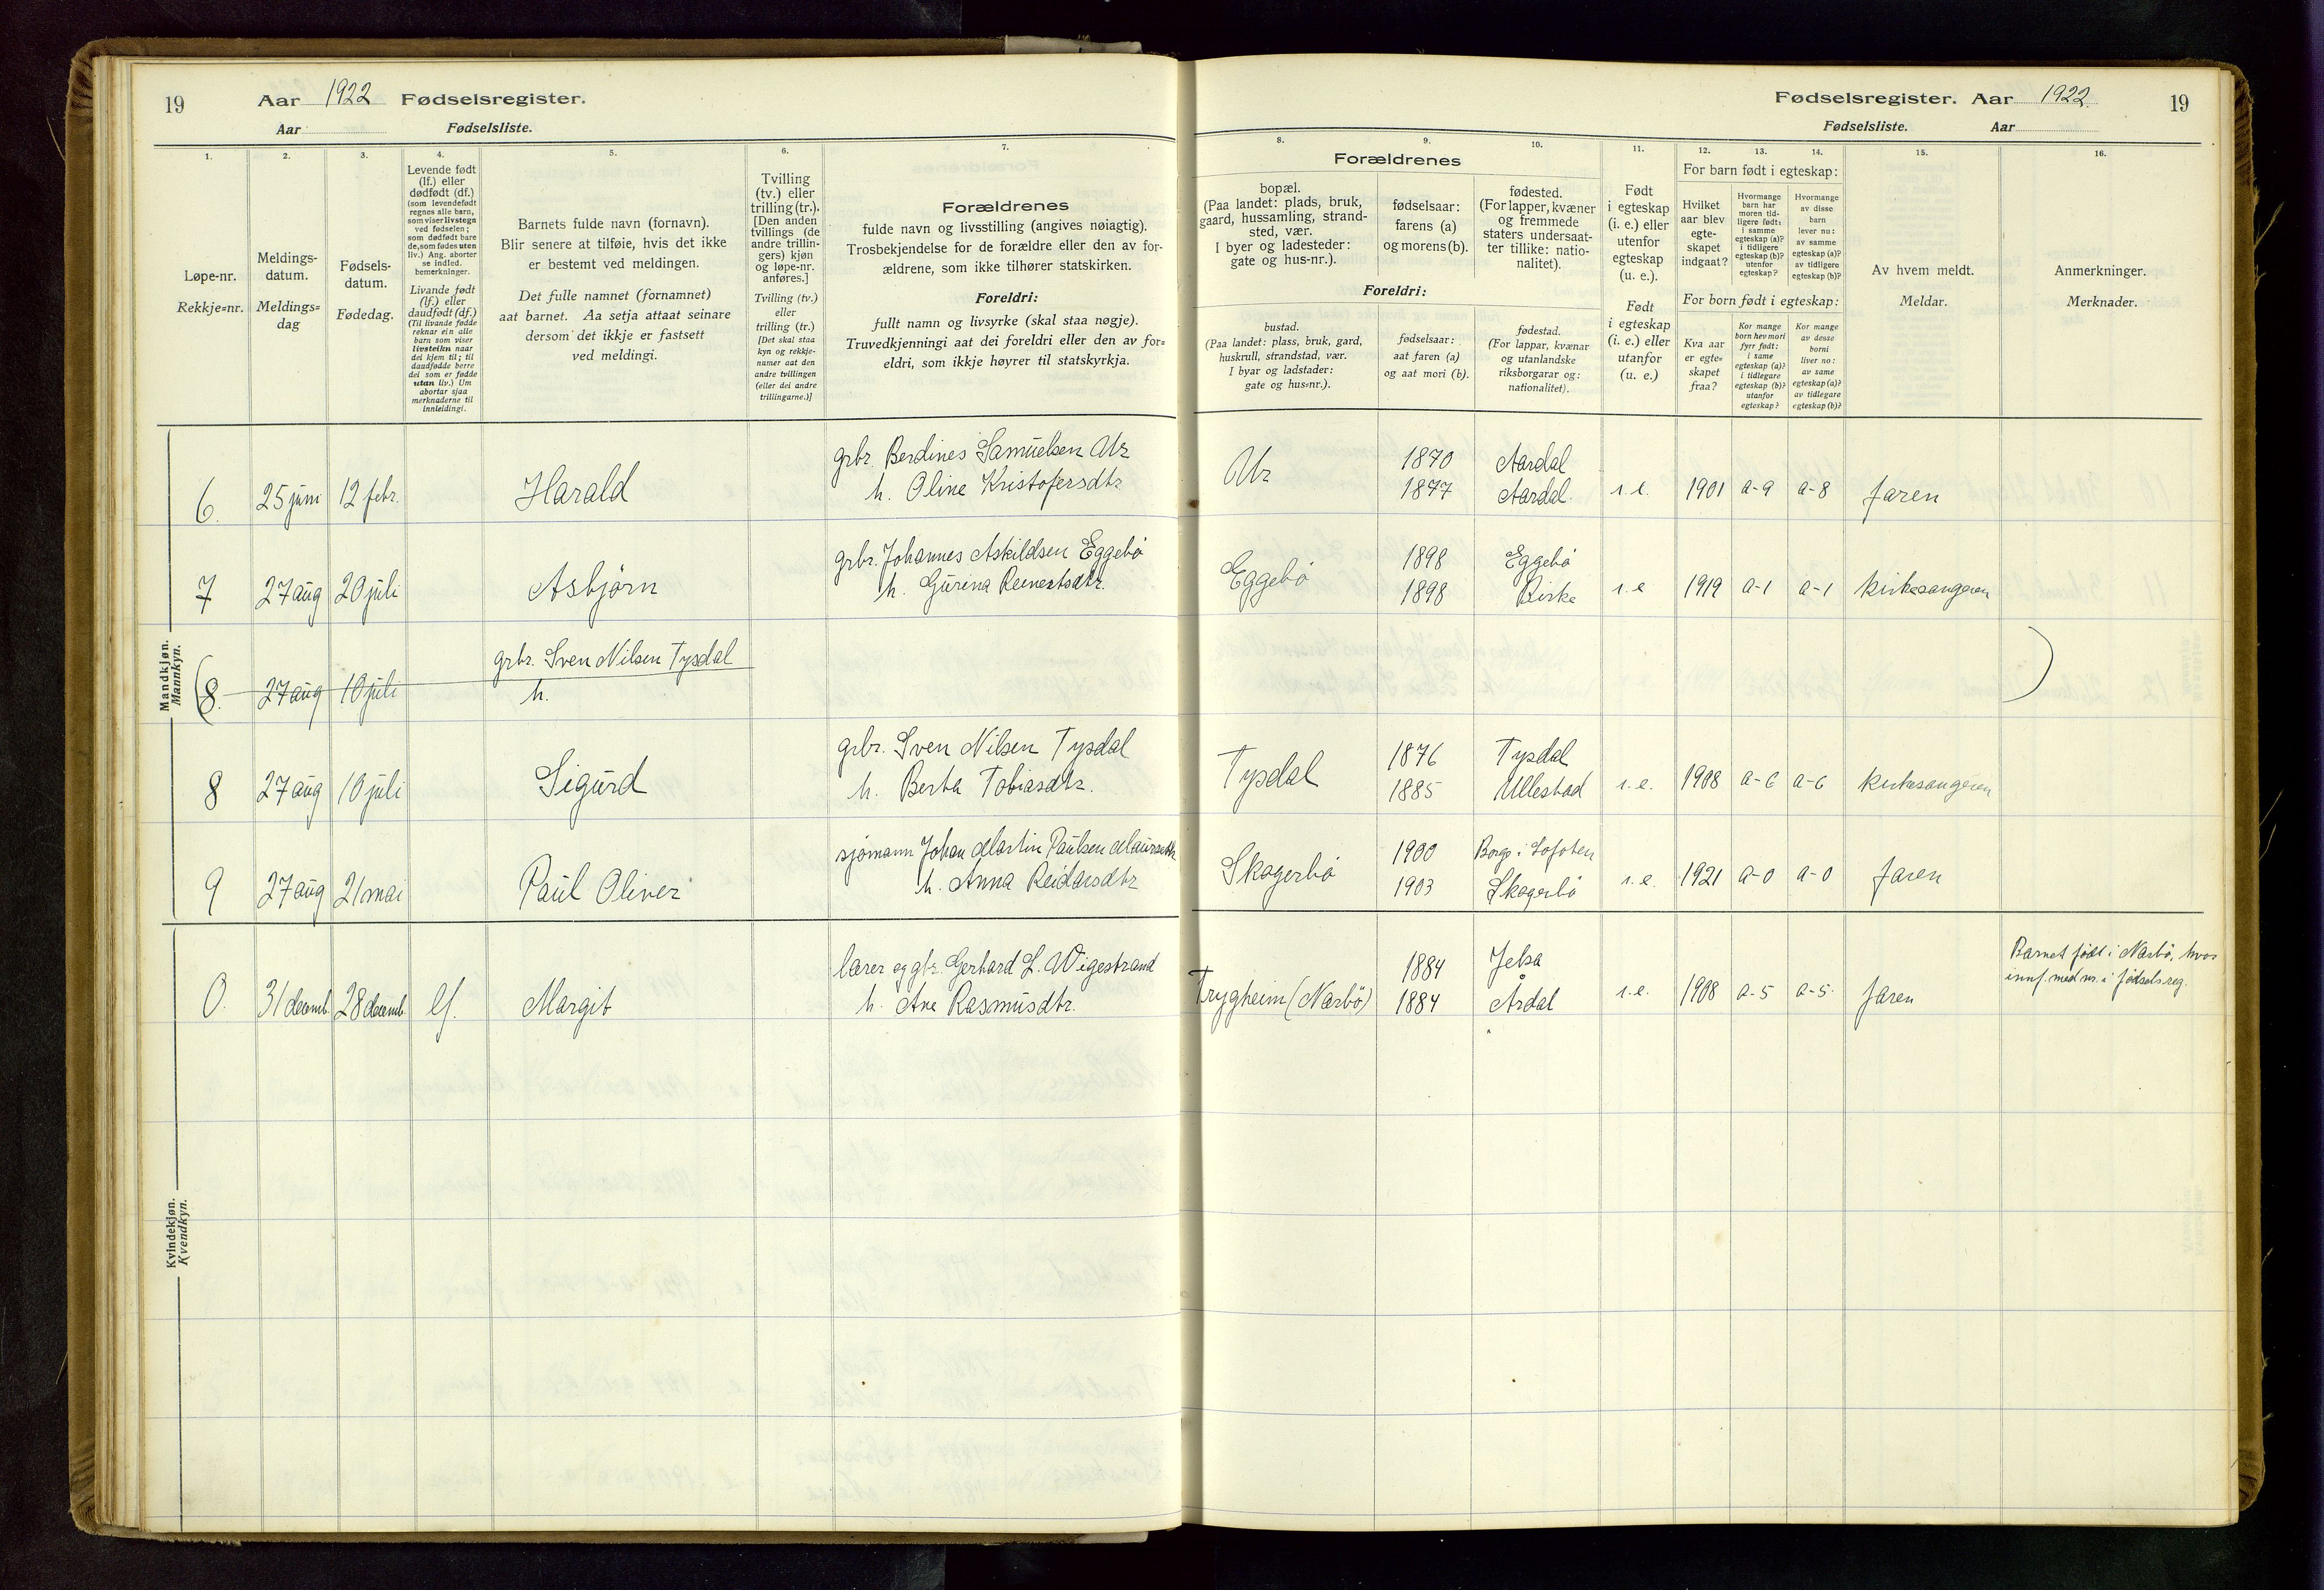 19
Aar 1922 Fødselsregister.
Aar Fødselsliste.
1.
2.
3.
4.
5.
6.
7.
Løpe-nr.
Rekkje=nr.
Meldings-
datum.
Meldings=
dag
Fødsels-
datum.
Fødedag.
Levende født
(lf.) eller
dødfødt (df.)
(som levendefødt
regnes alle barn,
som viser livstegn
ved fødselen;
som dødfødt bare
de, som fødes uten
liv.) Ang. aborter
se indled.
bemerkninger.
Livande født
(lf.) eller
daudfødt (df.)
(Til livande fødde
reknar ein alle
barn som viser
livsteikn naar
dei kjem til; til
daudfødde berre
dei som er fødde
utan liv.) Um
abortar sjaa
merknaderne til
innleidingi.
Barnets fulde navn (fornavn).
Blir senere at tilføie, hvis det ikke
er bestemt ved meldingen.
Det fulle namnet (fornamnet)
aat barnet. Aa setja attaat seinare
dersom det ikkje er fastsett
ved meldingi.
Tvilling
(tv.) eller
trilling (tr.).
[Den anden
tvillings (de
andre trillin-
gers) kjøn
og løpe-nr.
anføres.]
Tvilling (tv.)
eller
trilling (tr.)
[Det skal staa
kyn og rekkje-
numer aat den
andre tvillingen
(eller dei andre
trillingarne.)]
Forældrenes
fulde navn og livsstilling (angives nøiagtig).
Trosbekjendelse for de forældre eller den av for-
ældrene, som ikke tilhører statskirken.
Foreldri:
fullt namn og livsyrke (skal staa nøgje).
Truvedkjenningi aat dei foreldri eller den av for=
eldri, som ikkje høyrer til statskyrkja.
Mandkjøn.
Mannkyn.
6. 25 juni 12 febr. Harald
grbr. Berdines Samuelsen Ur
h. Oline Kristofersdtr
7 27 aug 20 juli Asbjørn
grbr. Johannes Askildsen Eggebø
h. Gurina Reinertsdtr.
(8. 27 aug 10 juli
grbr. Sven Nilsen Tysdal
h.
8 27 aug 10 juli Sigurd
grbr. Sven Nilsen Tysdal
h. Berta Tobiasdtr.
9 27 aug 21 mai Paul Oliver
sjømann Johan Martin Paulsen
h. Anna Reidarsdtr
Kvindekjøn.
Kvendkyn.
0. 31 decemb. 28 decemb. lf. Margit
lærer og gbr. Gerhard L. Wigestrand
h. Ane Rasmusdtr.
Fødselsregister. Aar 1922. 19
Fødselsliste. Aar
8.
9.
10.
11.
12.
13.
14.
15.
16.
Forældrenes
bopæl.
(Paa landet: plads, bruk,
gaard, hussamling, strand-
sted, vær.
I byer og ladesteder:
gate og hus-nr.).
fødselsaar:
farens (a)
og morens (b).
fødested.
(For lapper, kvæner
og fremmede
staters undersaat-
ter tillike: natio-
nalitet).
Foreldri:
bustad.
(Paa landet: plass, bruk, gard,
huskrull, strandstad, vær.
I byar og ladstader:
gate og hus=nr.).
fødselsaar:
aat faren (a)
og aat mori (b).
fødestad.
(For lappar, kvænar
og utanlandske
riksborgarar og:
nationalitet).
Født
i egteskap
(i. e.) eller
utenfor
egteskap
(u. e.).
Født
i egteskap
(i. e.) eller
utanfor
egteskap
(u. e.)
For barn født i egteskap:
Hvilket
aar blev
egte-
skapet
indgaat?
Hvormange
barn har
moren tid-
ligere født:
i samme
egteskap (a)?
i tidligere
egteskap (b)?
utenfor
egteskap?
Hvormange
av disse
barn
lever nu:
av samme
egteskap (a)?
av tidligere
egteskap (b)?
For born født i egteskap:
Kva aar
er egte=
skapet
fraa?
Kor mange
born hev mori
fyrr født:
i same
egteskap (a)?
i tidlegare
egteskap (b)?
utanfor
egteskap?
Kor mange
av desse
borni
liver no:
av same
egteskap (a)?
av tidlegare
egteskap (b)?
Av hvem meldt.
Meldar.
Anmerkninger.
Merknader.
Ur
1870 Aardal
1877 Aardal. i.e. 1901 a-9 a-8 faren
Eggebø
1898 Eggebø
1898 Birke i.e 1919 a-1 a-1 kirkesangeren
)
Tysdal
1876 Tysdal
1885 Ullestad i.e. 1908 a-6 a-6 kirkesangeren
Skogerbø
1900 Borge i Lofoten
1903 Skogerbø i.e. 1921 a-0 a-0 faren
Trygheim (Nærbø)
1884 Jelsa
1884 Årdal i.e. 1908 a-5 a-5. faren
Barnet født i Nærbø, hvor
innf. med nr. i fødselsreg.